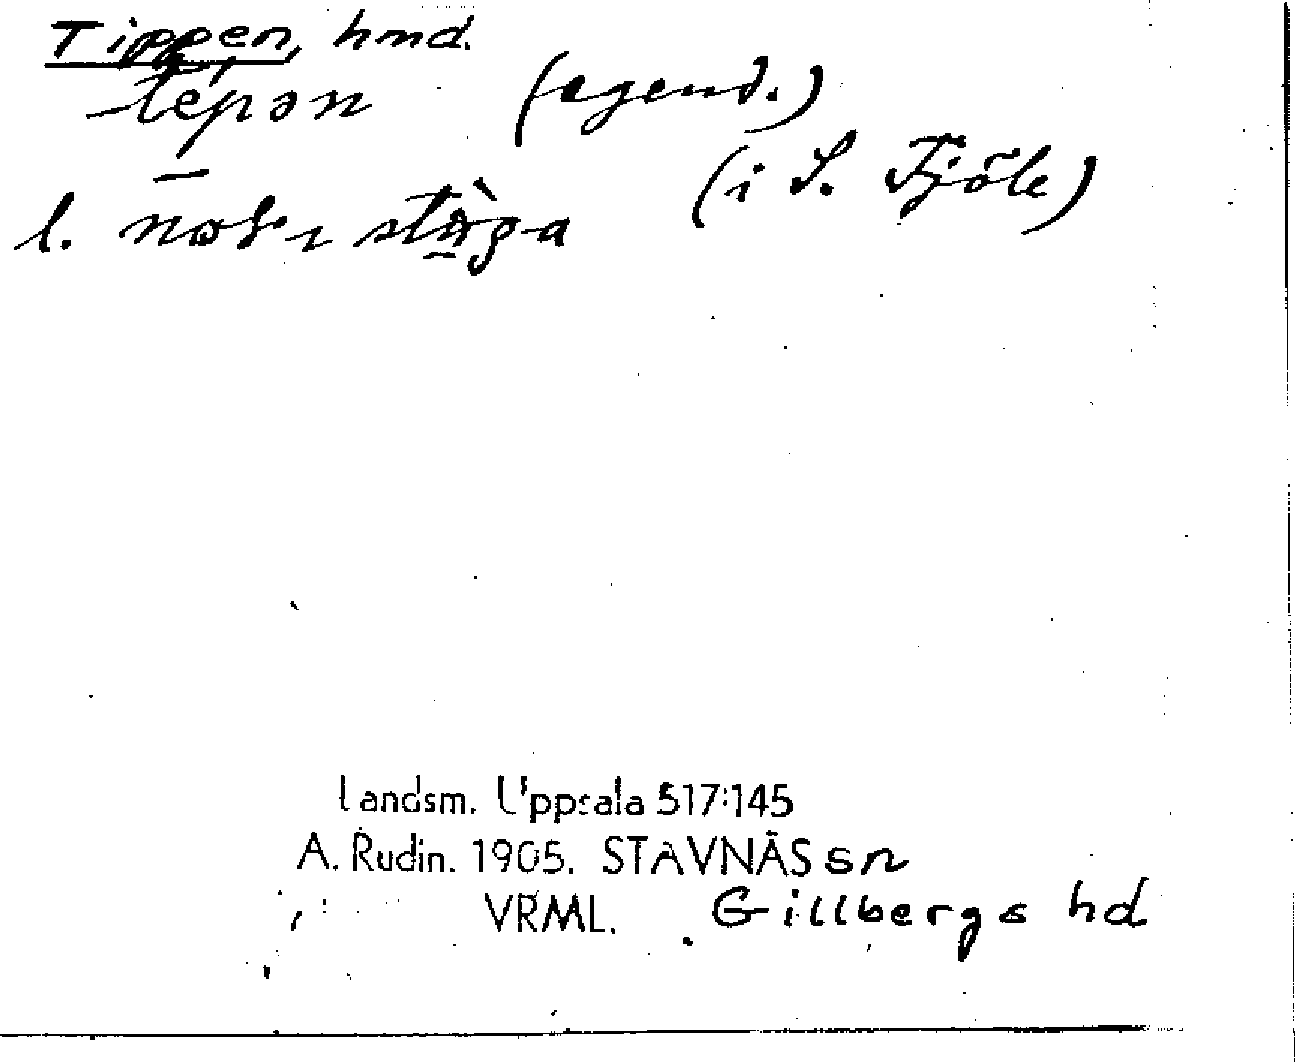 Tippen, hmd.
tépən (egend.)
(i S. Fjöle)
l. stù̱ga
Landsm. Uppsala 517:145
A. Rudin. 1905. STAVNÄS sn
VRML. Gillbergs hd